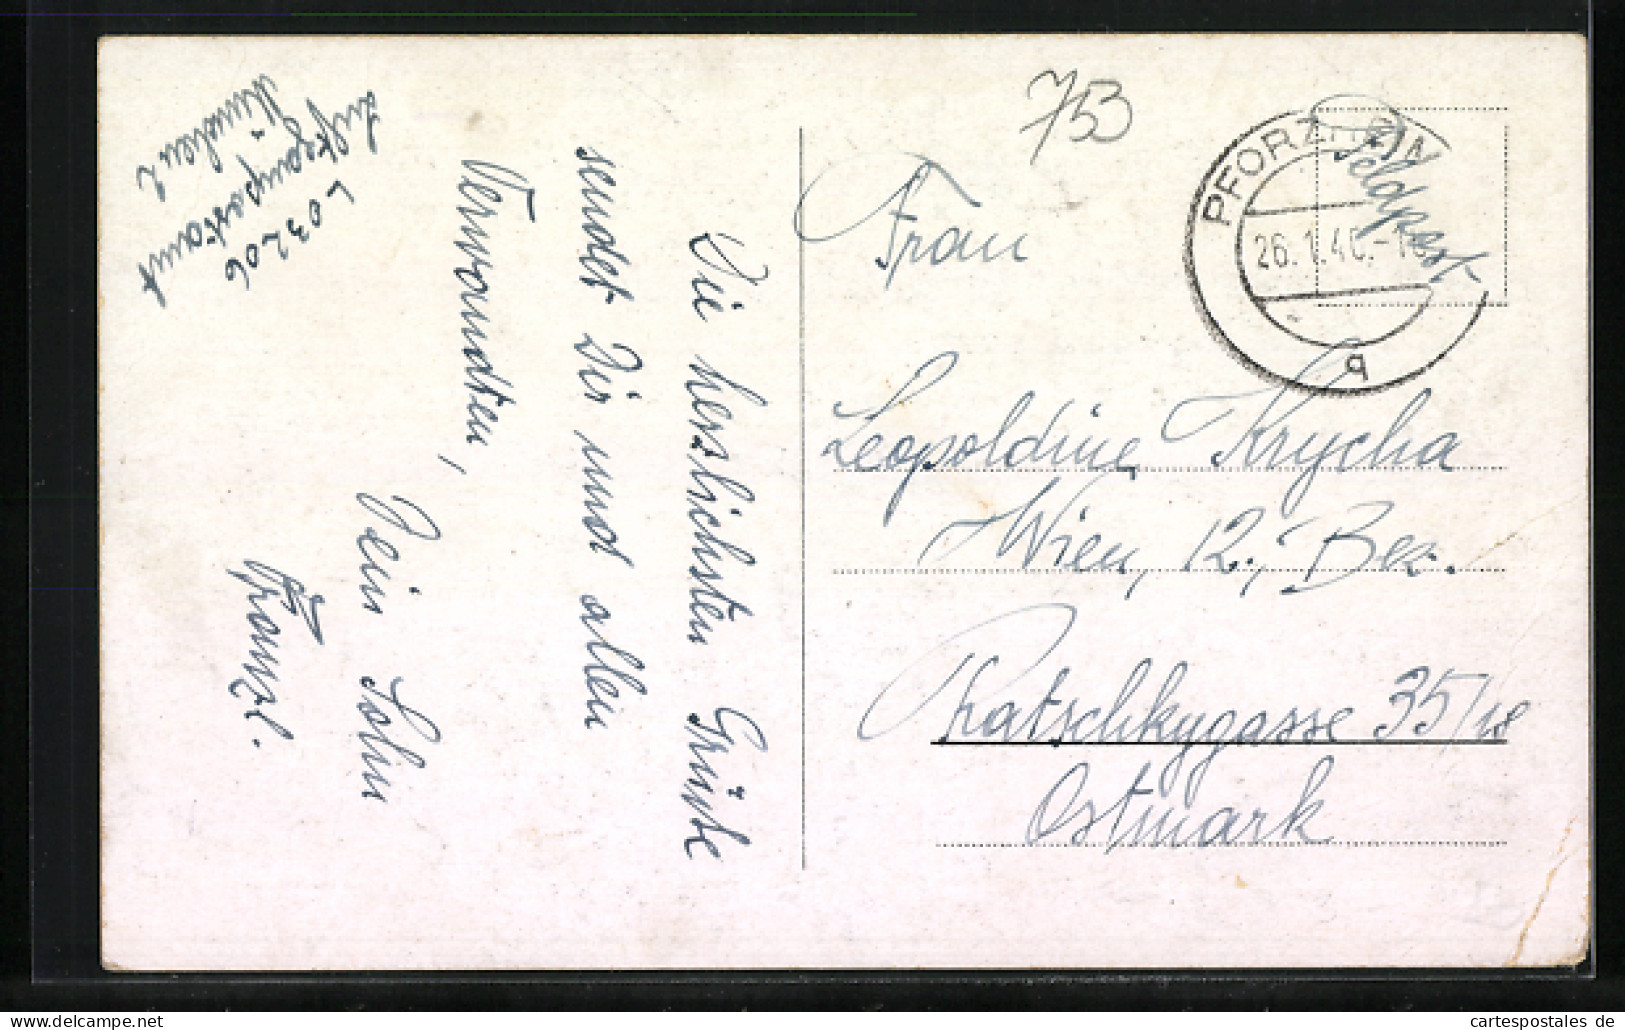 753
PFORZHEIM
26.1.40.-18
a
Feldpost
Frau
Leopoldine Krycha
Wien, 12., Bez.
Ratschkygasse 35/18
Ostmark
Die herzlichsten Grüße
sendet Dir und allen
Verwandten,
Dein Sohn
Franzl.
L 03206
Luftgaupostamt
München 2
www.delcampe.net
cartespostales de